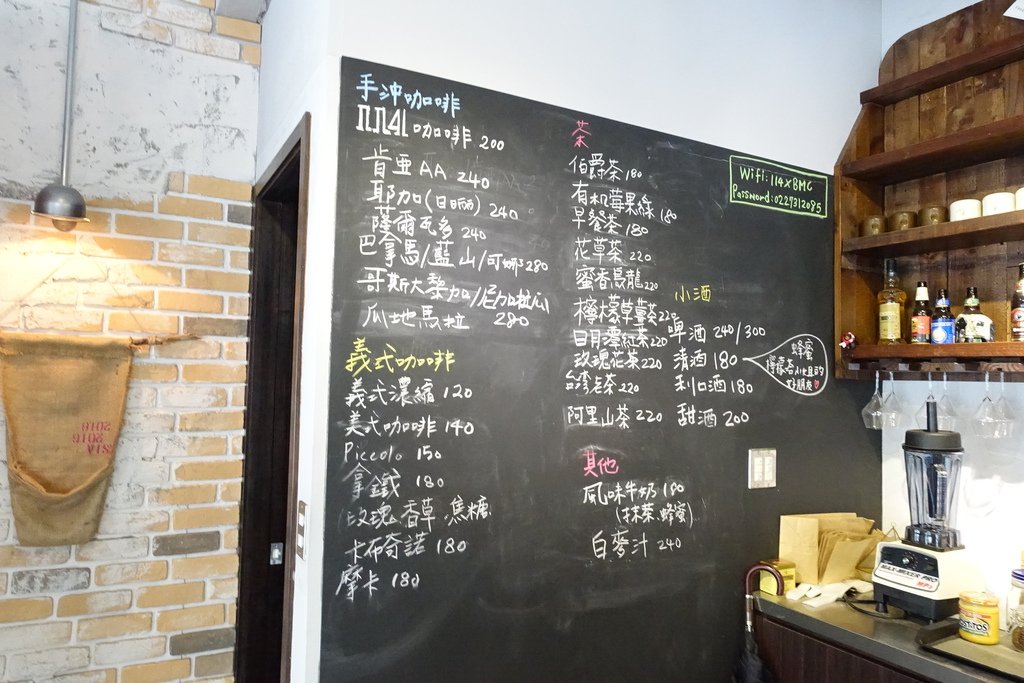 手沖咖啡
咖啡 200
肯亞AA 240
耶加(日晒) 240
薩爾瓦多 240
巴拿馬/藍山/可娜 280
哥斯大黎加/尼加拉瓜
瓜地馬拉 280
義式咖啡
義式濃縮 120
美式咖啡 140
Piccolo 150
拿鐵 180
玫瑰.香草.焦糖
卡布奇諾 180
摩卡 180
茶
伯爵茶 180
有机莓果綠 180
早餐茶 180
花草茶 220
蜜香烏龍 220
檸檬草薑茶 220
日月潭紅茶 220
玫瑰花茶 220
台灣老茶 220
阿里山茶 220
小酒
啤酒 240/300
清酒 180
利口酒 180
甜酒 200
蜂蜜
好朋友
其他
風味牛奶 180
(抹茶.蜂蜜)
白麥汁 240
Wifi: 114XBMC
Password: 0227312085
2016
2016
MAX-MIXER PRO